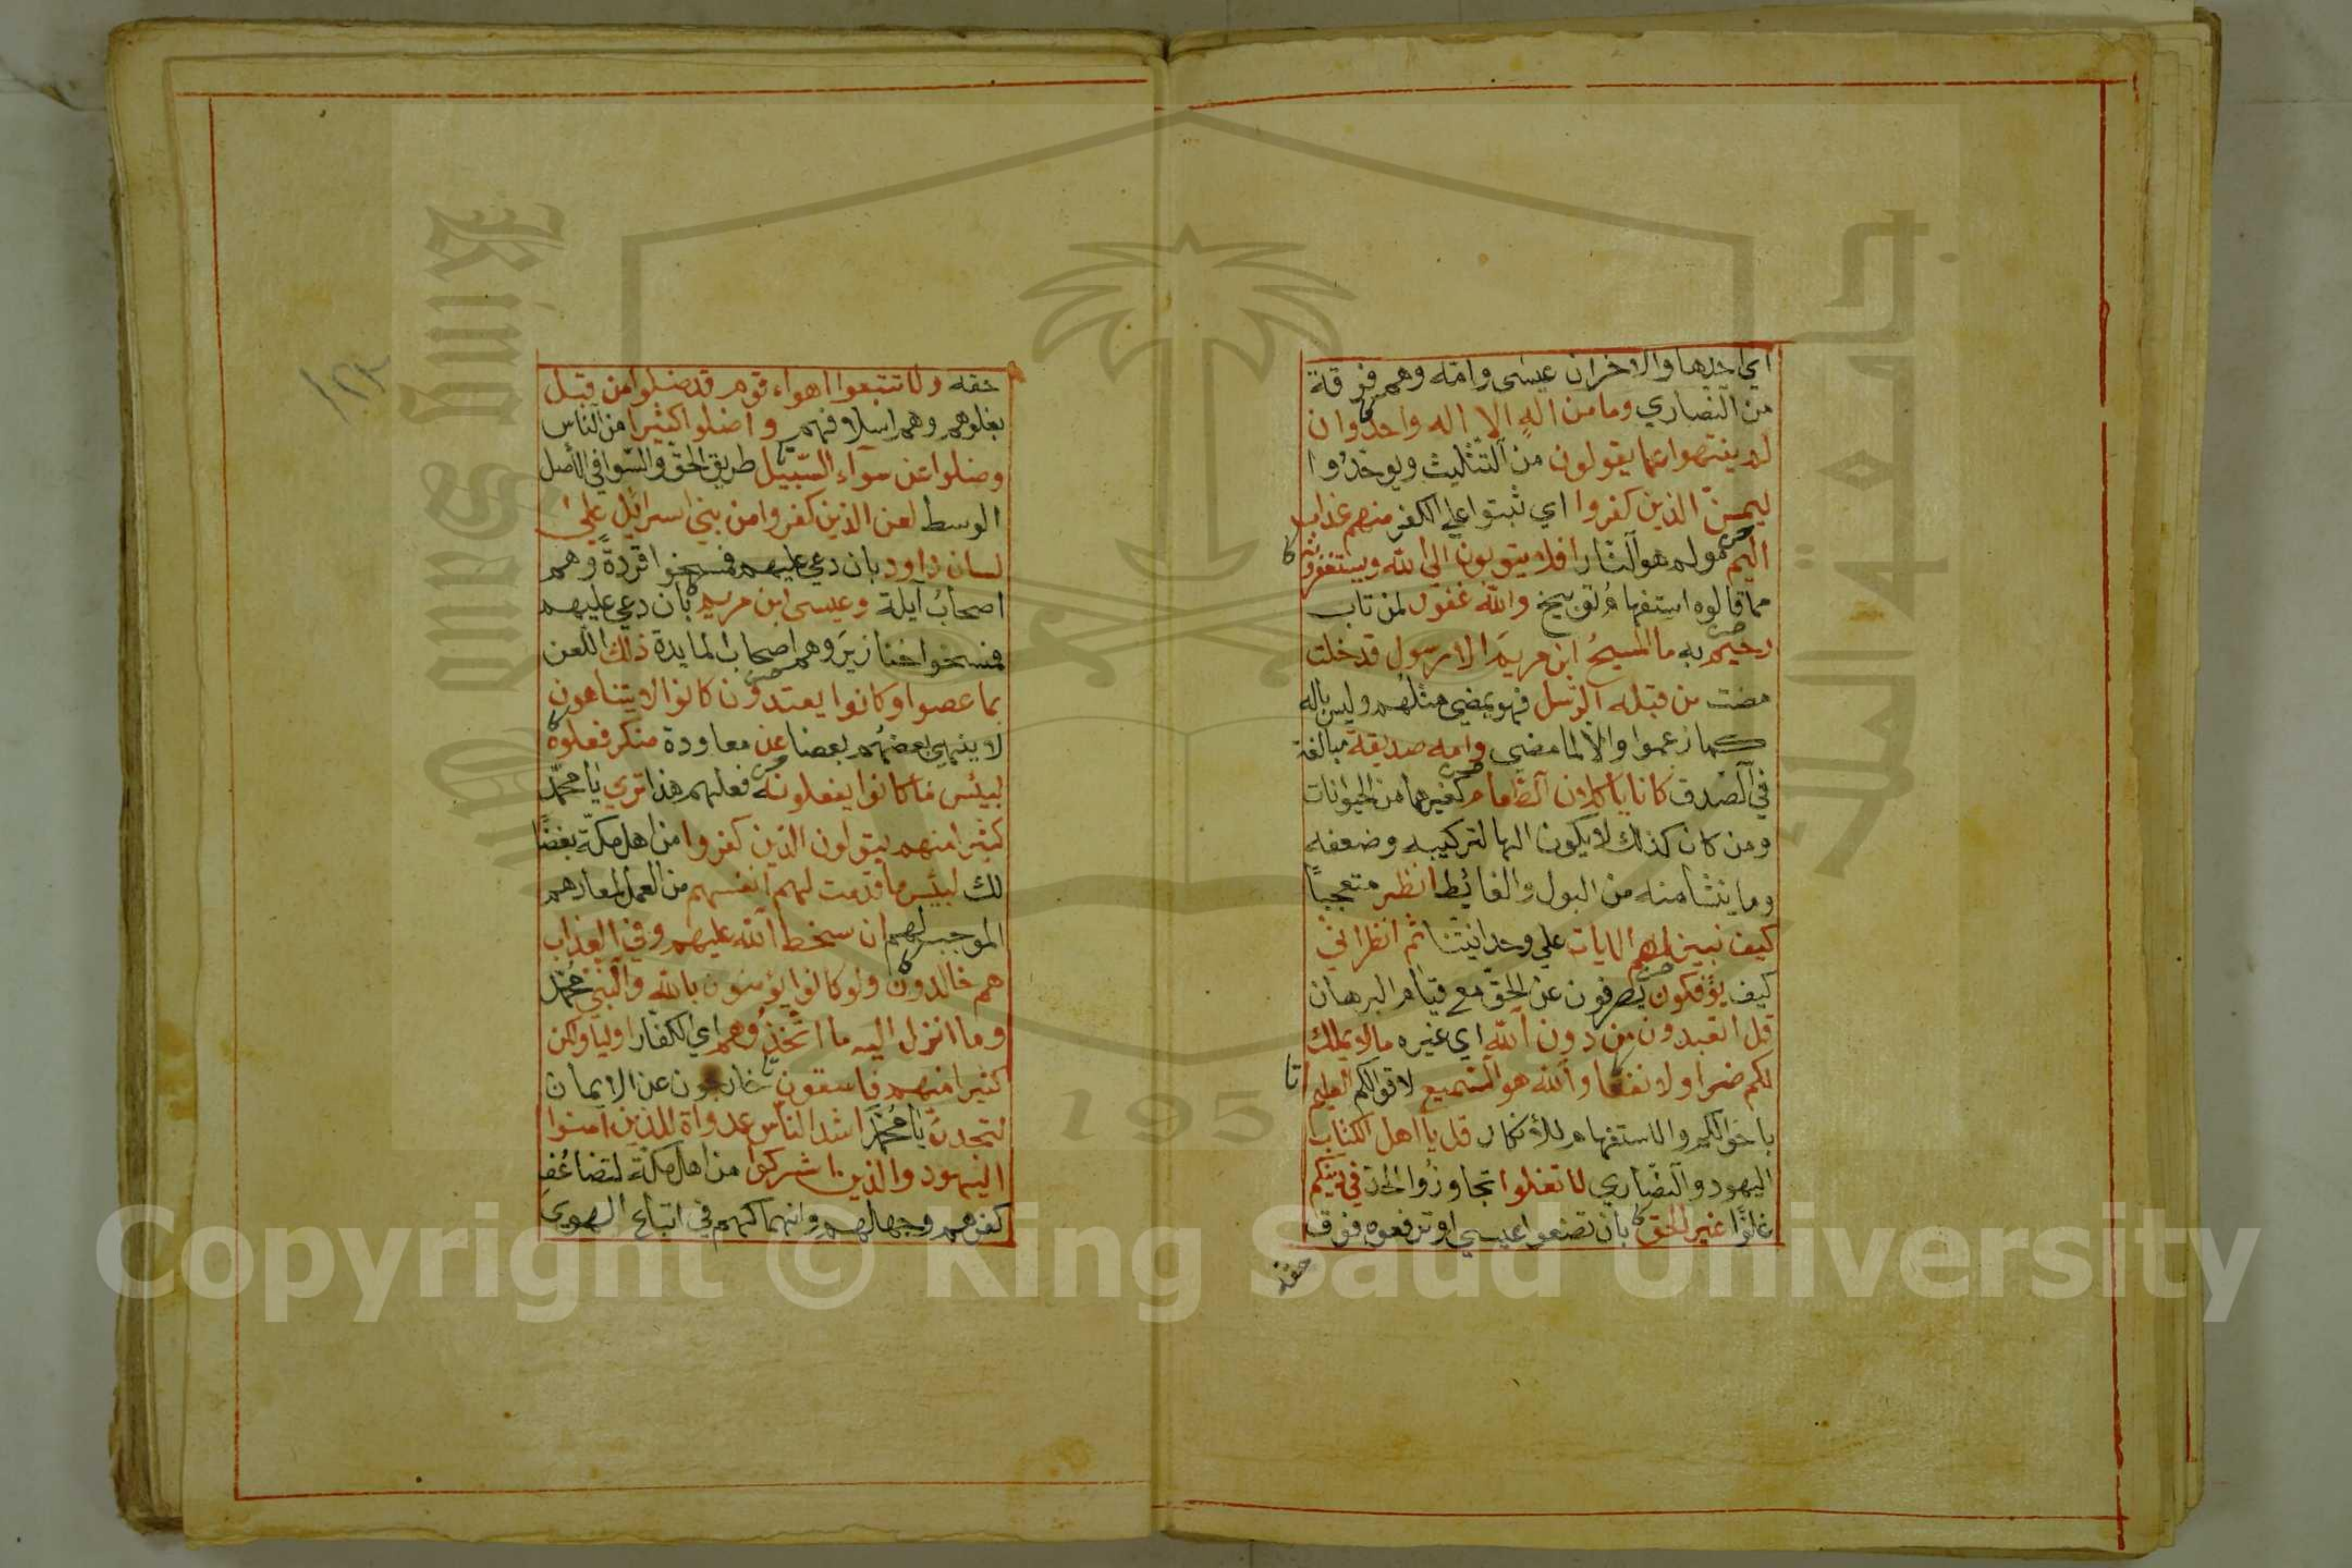 اي احدها والاخران عيسى وامه وهم فرقة
من النصاري وما من اله الا اله واحد وان
لم ينتهوا عما يقولون من التثليث ويوحدوا
ليمسن الذين كفروا اي ثبتوا علي الكفر منهم عذاب
اليم مولم هو النار افلا يتوبون الي الله ويستغفرونه
مما قالوه استفهام توبيخ والله غفور لمن تاب
رحيم به ما المسيح ابن مريم الا رسول قد خلت
مضت من قبله الرسل فهو يمضي مثلهم وليس باله
كما زعموا والا لما مضي وامه صديقة مبالغة
في الصدق كانا ياكلان الطعام كغيرهما من الحيوانات
ومن كان كذلك لا يكون الها لتركيبه وضعفه
وما ينشا منه من البول والغائط انظر متعجبا
كيف نبين لهم الايات علي وحدانيتنا ثم انظر اني
كيف يؤفكون يصرفون عن الحق مع قيام البرهان
قل اتعبدون من دون الله اي غيره ما لا يملك
لكم ضرا ولا نفعا والله هو السميع لاقوالكم العليم
باحوالكم والاستفهام للانكار قل يا اهل الكتاب
اليهود والنصاري لا تغلوا تجاوزوا الحد في دينكم
غلوا غير الحق بان تضعوا عيسي او ترفعوه فوق
حقه
١٢٢
حقه ولا تتبعوا اهواء قوم قد ضلوا من قبل
بغلوهم وهم اسلافهم واضلوا كثيرا من الناس
وضلوا عن سواء السبيل طريق الحق والسوا في الاصل
الوسط لعن الذين كفروا من بني اسرائيل علي
لسان داود بان دعي عليهم فمسخوا قردة وهم
اصحاب ايلة وعيسى ابن مريم بان دعي عليهم
فمسخوا خنازير وهم اصحاب المايدة ذلك اللعن
بما عصوا وكانوا يعتدون كانوا لا يتناهون
لا ينهي بعضهم بعضا عن معاودة منكر فعلوه
لبيئس ما كانوا يفعلونه فعلهم هذا تري يا محمد
كثيرا منهم يتولون الذين كفروا من اهل مكة بغضا
لك لبيئس ما قدمت لهم انفسهم من العمل لمعادهم
الموجب لهم ان سخط الله عليهم وفي العذاب
هم خالدون ولو كانوا يؤمنون بالله والنبي محمد
وما انزل اليه ما اتخذوهم اي الكفار اوليا ولكن
كثيرا منهم فاسقون خارجون عن الايمان
لتجدن يا محمد اشد الناس عدواة للذين امنوا
اليهود والذين اشركوا من اهل مكة لتضاعف
كفرهم وجهالهم وانهماكهم في اتباع الهوي
Copyright © King Saud University
195